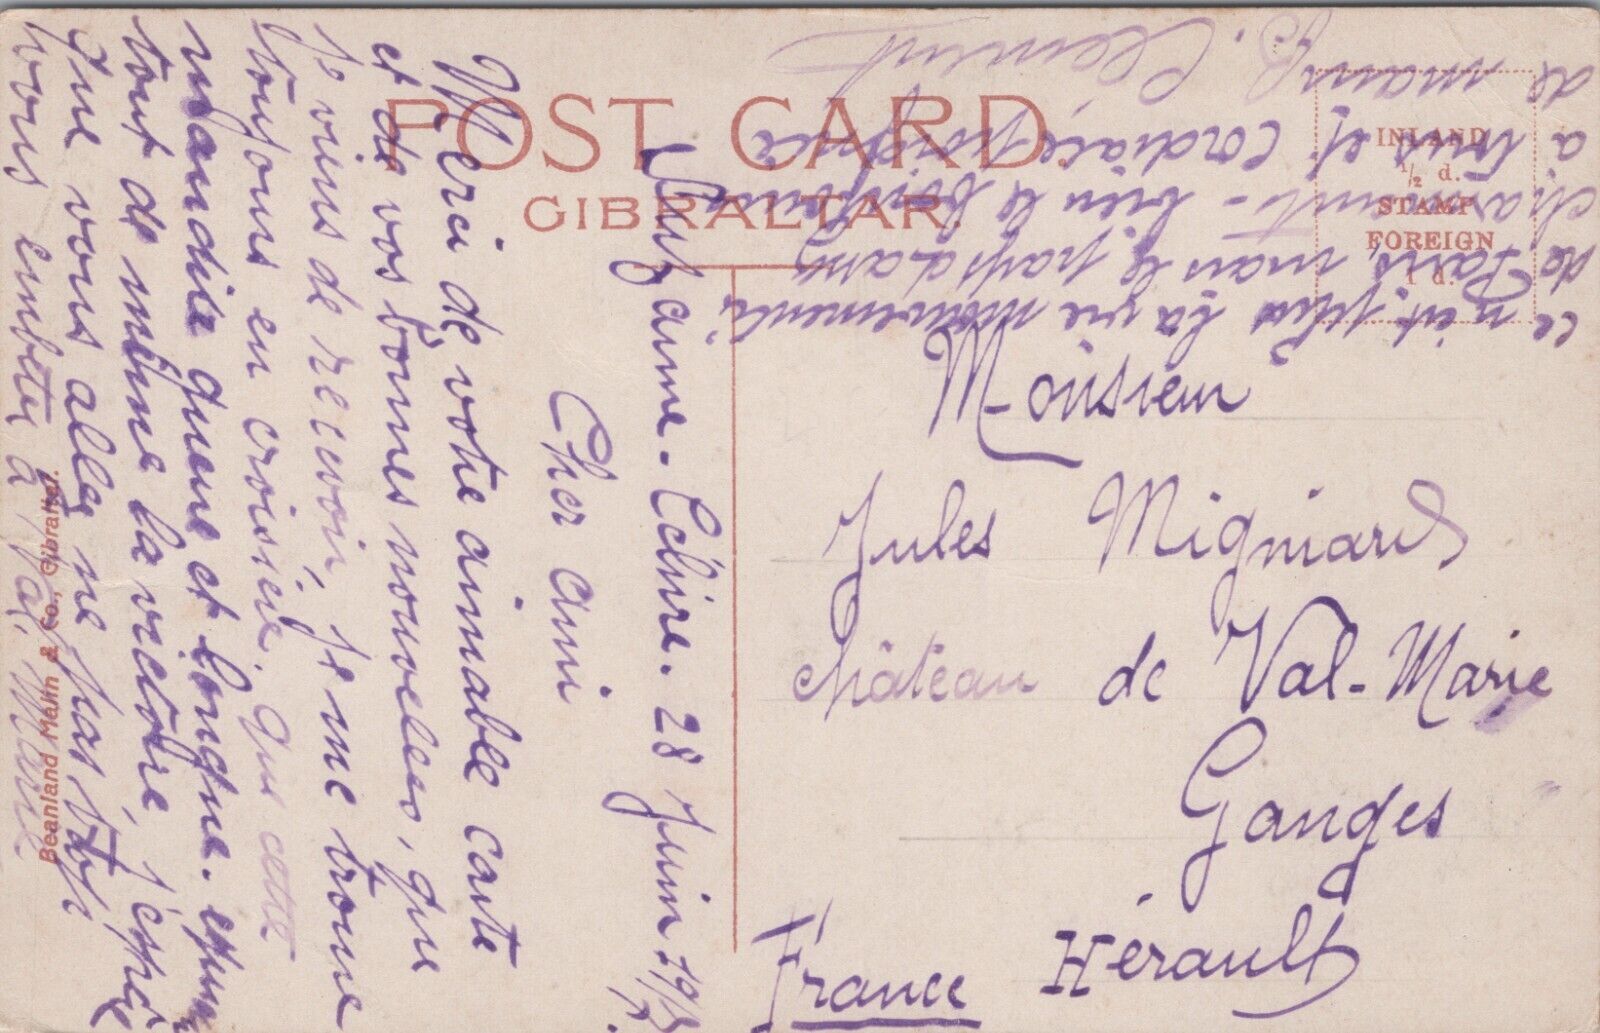 POST CARD
GIBRALTAR.
INLAND
½ d.
STAMP
FOREIGN
1 d.
Beanland Malin & Co., Gibraltar.
Cher ami
Merci de votre aimable carte
et de vos bonnes nouvelles, que
je viens de recevoir, je me trouve
toujours en croisière. que cette
maudite guerre est longue.
tout de même la victoire, j'espère
que vous allez ne pas trop
vous embêter à Val. Marie
ce n'est plus la vie mouvementée
de Paris, mais le pays
charmant - bien le bonjour
à tous et cordiale poignée
de main
B. Clement
Monsieur
Jules Migniard
Château de Val-Marie
Ganges
Hérault
France
28 Juin 19